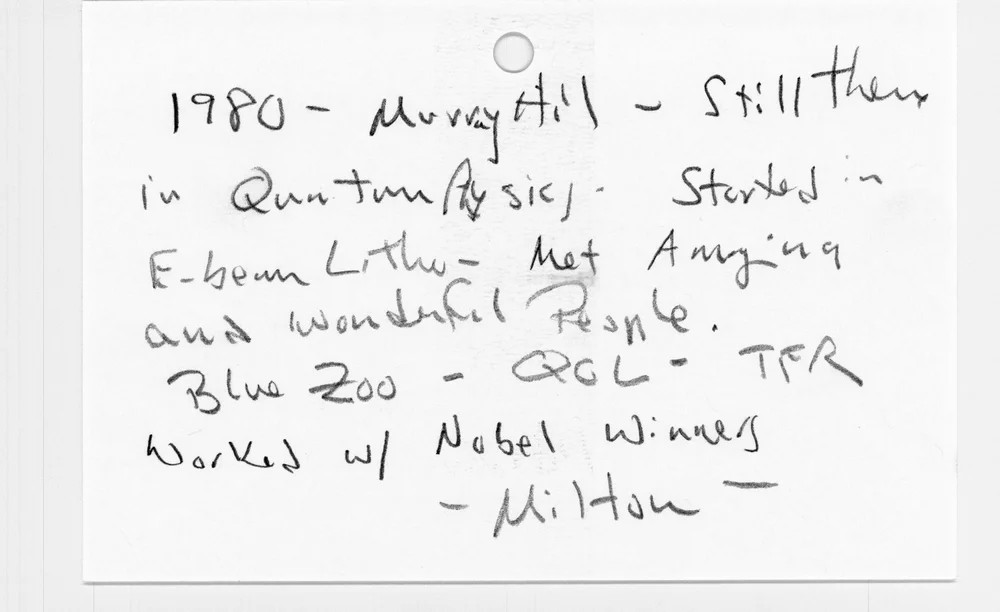 1980 - Murray Hill - Still there
in Quantum Physics - Started in
E-beam Litho - Met Amazing
and wonderful People.
Blue Zoo - QGL - TFR
Worked w/ Nobel Winners
- Milton -